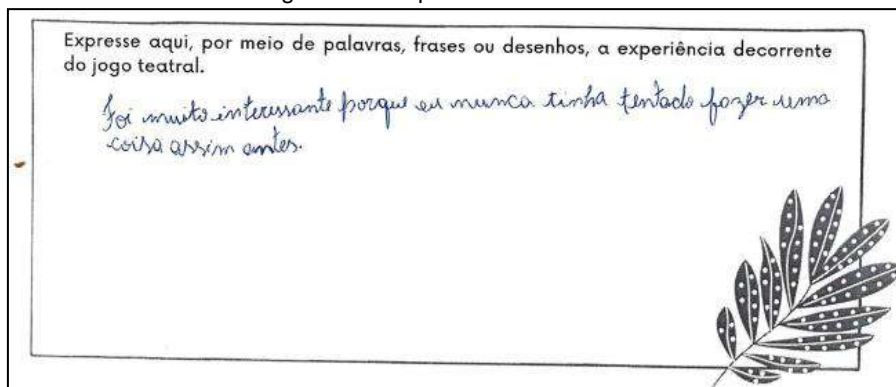 Expresse aqui, por meio de palavras, frases ou desenhos, a experiência decorrente
do jogo teatral.
Foi muito interessante porque eu nunca tinha tentado fazer uma
coisa assim antes.